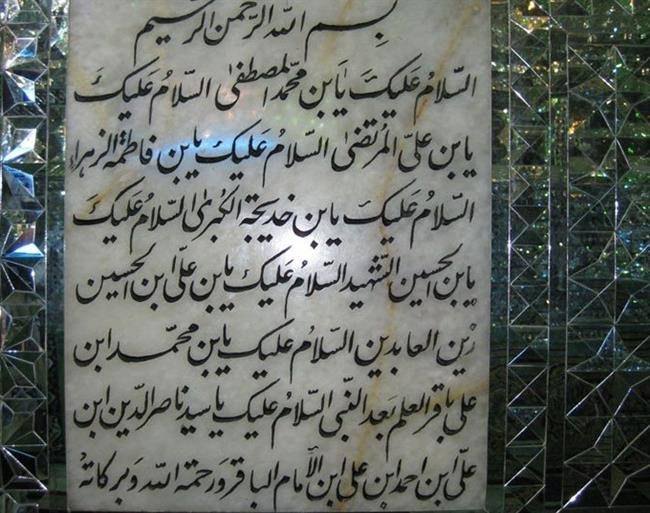 بِسم الله الرّحمن الرّحیم
السّلامُ عَلیکَ یَابن محمّد المصطفیٰ السّلامُ عَلیکَ
یابن علیّ المُرتضیٰ السّلامُ عَلیکَ یابن فاطمة الزهراء
السّلامُ عَلیکَ یابن خدیجة الکُبریٰ السّلامُ عَلیکَ
یابن الحسین الشّهید السّلامُ عَلیکَ یابن علیّ ابن الحسین
زین العابدین السّلامُ علیکَ یابن محمّد ابن
علی باقر العلم بعد النّبی السّلامُ عَلیکَ یا سید ناصر الدّین ابن
علیّ ابن احمد ابن علی ابن الأمام الباقر و رحمة الله وَبرکاتهُ